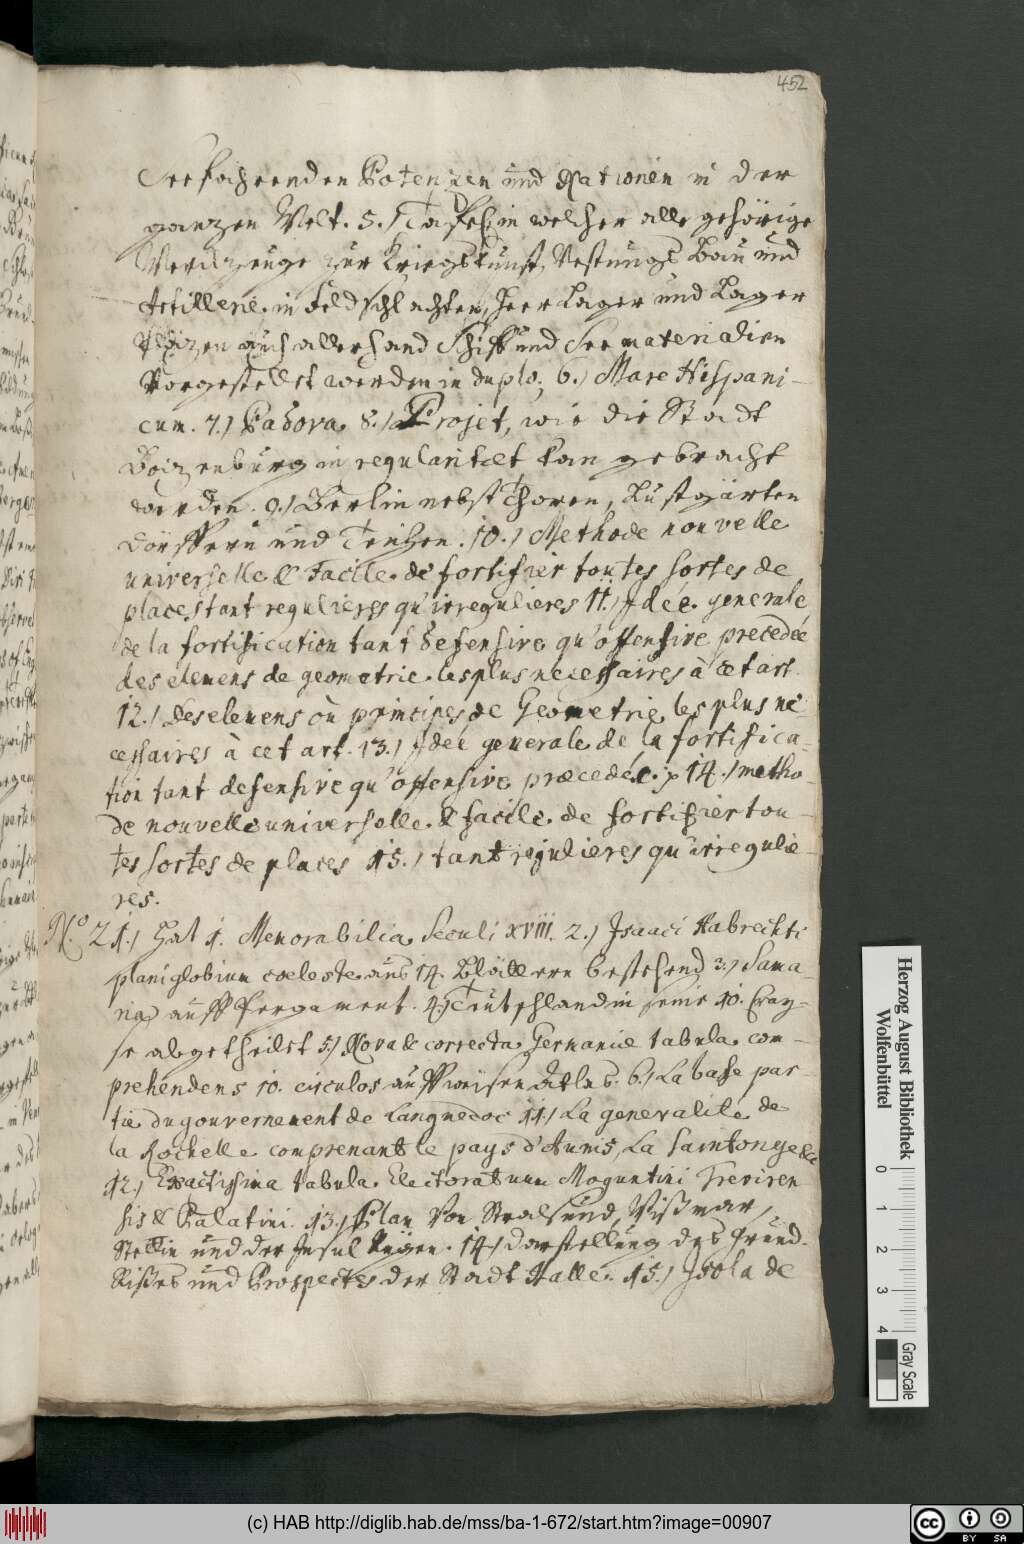 452
Seefahrenden Potenzen und Nationen in der
gantzen Welt. 5.) Tafel in welcher alle gehörige
Werckzeuge zur Kriegs Kunst, Vestungs Bau und
Artillerie. in Feldschlachten, Heer Lager und Lager
Plätzen auch allerhand Schiff und See materialien
Vorgestellet werden in duplo. 6.) Mare Hispani-
cum. 7.) Padova. 8.) Projet, wie die Stadt
Boizenburg in regularitaet kan gebracht
werden. 9.) Berlin nebst Thoren, Lustgärten
Dörffern und Teichen. 10.) Methode nouvelle
universelle & Facile. de fortifier toutes sortes de
places tant regulieres qu'irregulieres 11.) Idée generale
de la fortification tant defensive qu'offensive precedée
des elemens de geometrie. les plus necessaires à cet art.
12.) Des elemens où principes de Geometrie les plus ne-
cessaires à cet art. 13.) Idée generale de la fortifica-
tion tant defensive qu'offensive præcedée. 14.) metho-
de nouvelle universelle. & facile. de fortifier tou-
tes sortes de places 15.) tant regulieres qu'irregulie-
res.
N.º 21.) Hat 1. Memorabilia Seculi XVIII. 2.) Isaaci Habrechti
planiglobium coeleste aus 14. Blättern bestehend 3.) Sama-
ria auff Pergament. 4.) Teutschland in seine 10. Cray-
se abgetheilet 5.) Nova & correcta Germaniæ tabula com-
prehendens 10. circulos auff weisen Atlas. 6.) La basse par-
tie du gouvernement de Languedoc 11.) La generalité de
la Rochelle comprenant le pays d'Aunis, La Saintonge &c
12.) Exactissima tabula Electoratuum Moguntini Treviren
sis & Palatini. 13.) Plan Von Stralsund, Wißmar,
Stettin und der Insul Rügen. 14.) Darstellung des Grund-
Rißes und Prospectes der Stadt Halle. 15.) Isola de
Herzog August Bibliothek
Wolfenbüttel
0 1 2 3 4
Gray Scale
(c) HAB http://diglib.hab.de/mss/ba-1-672/start.htm?image=00907
cc BY SA